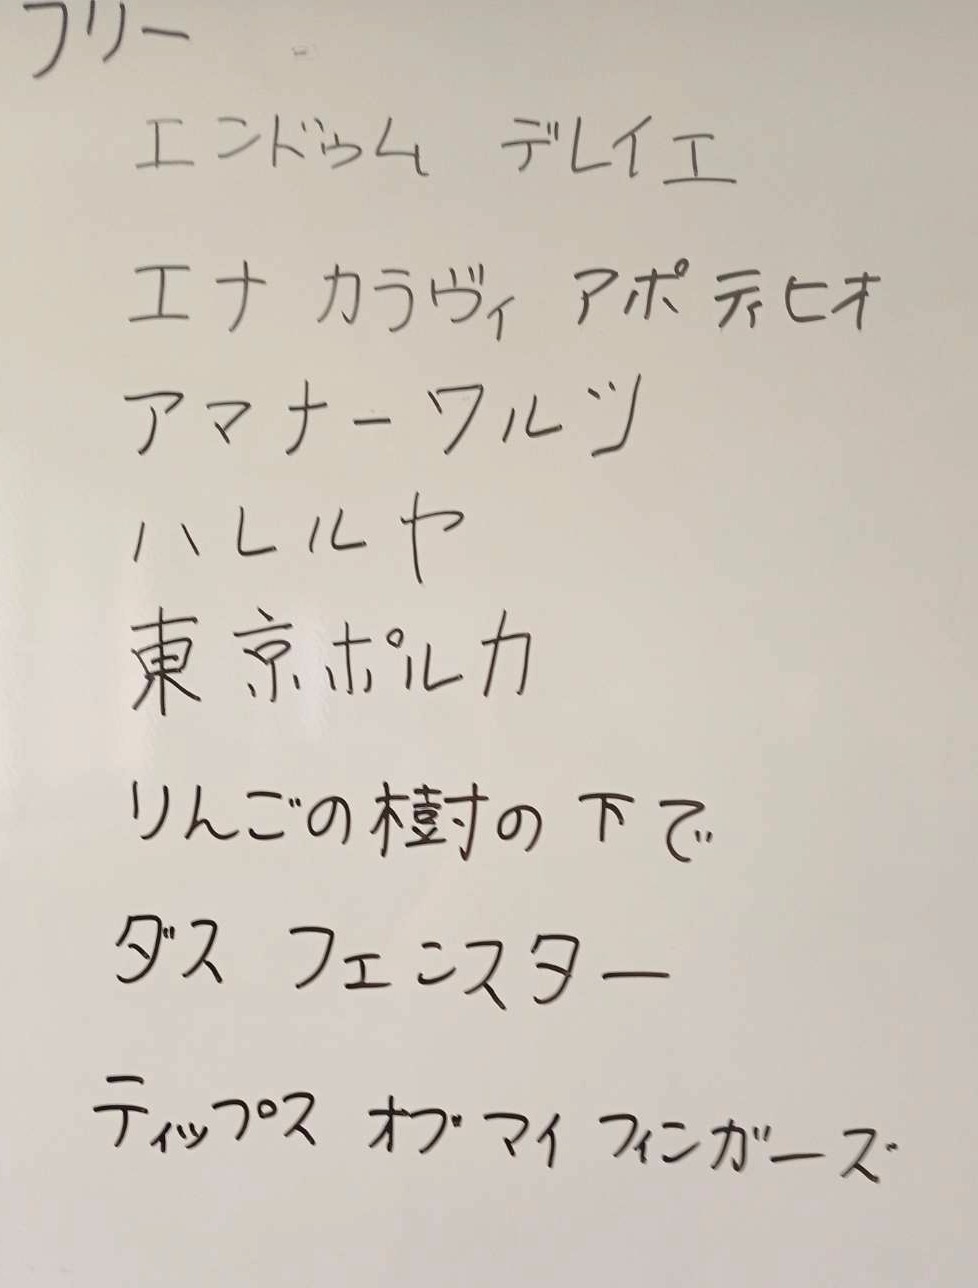 フリー
エンドゥム デレイエ
エナ カラヴィ アポ ティヒオ
アマナーワルツ
ハレルヤ
東京ポルカ
りんごの樹の下で
ダス フェンスター
ティップス オブ マイ フィンガーズ